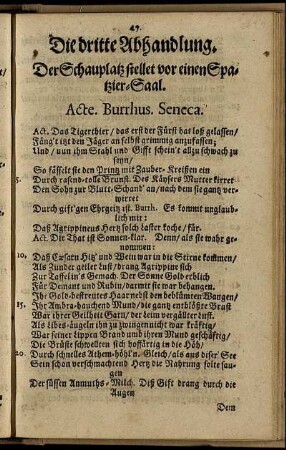 47.
Die dritte Abhandlung.
Der Schauplatz stellet vor einen Spa-
tzier-Saal.
Acte. Burrhus. Seneca.
Act. Das Tigerthier/ das erst der Fürst hat loß gelassen/
Fäng't itzt den Jäger an selbst grimmig anzufassen;
Und/ nun ihm Stahl und Gifft schein't allzu schwach zu
seyn/
So fässelt sie den Printz mit Zauber-Kreissen ein
5. Durch rasend-tolle Brunst. Des Käysers Mutter kirret
Den Sohn zur Blutt-Schand' an/ nach dem sie gantz ver-
wirret
Durch gift'gen Ehrgeitz ist. Burrh. Es kommt unglaub-
lich mir:
Daß Agrippinens Hertz solch laster koche/ für.
Act. Die That ist Sonnen-klar. Denn/ als sie wahr ge-
nommen:
10. Daß Cæsarn Hitz' und Wein war in die Stirne kommen/
Als Zunder geiler Lust/ drang Agrippine sich
Zur Taffel in's Gemach. Der Sonne Gold erblich
Für Demant und Rubin/ darmit sie war behangen.
Ihr Gold-bestreutes Haar netzt den beblümten Wangen/
15. Ihr Ambra-hauchend Mund/ die gantz entblößte Brust
War ihrer Geilheit Garn/ der keim vergällter Lust.
Als libes-äugeln ihn zu zwingen nicht war kräftig/
War seiner lippen Brand und ihren Mund geschäftig/
Die Brüste schwellten sich hoffärtig in die Höh/
20. Durch schnelles Athem-höhl'n. Gleich/ als aus diser See
Sein schon verschmachtend Hertz die Nahrung solte sau-
gen
Der süssen Anmuths-Milch. Diß Gift drang durch die
Augen
Dem